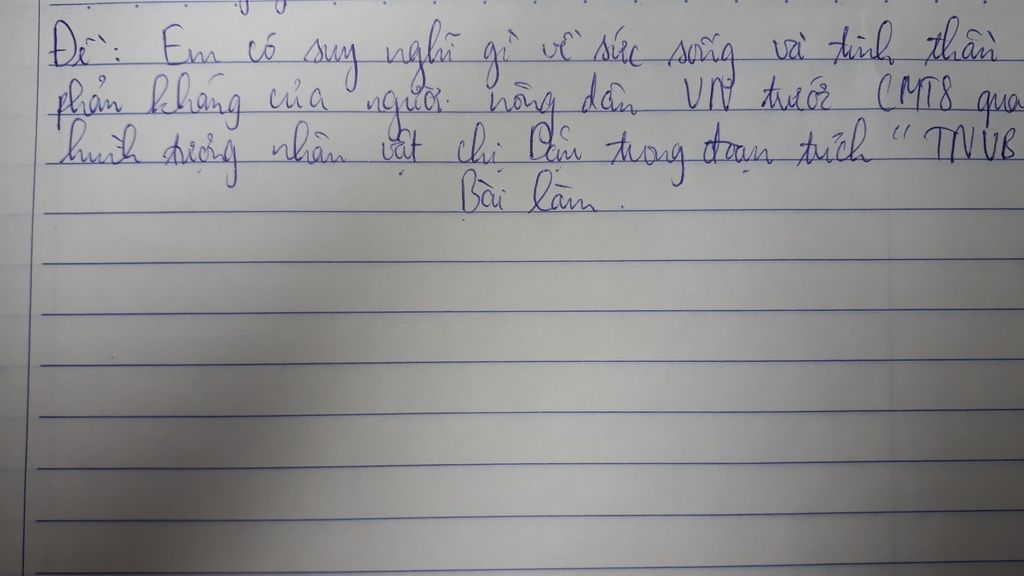 Đề: Em có suy nghĩ gì về sức sống và tinh thần
phản kháng của người nông dân VN trước CMT8 qua
hình tượng nhân vật chị Dậu trong đoạn trích "TNVB
Bài làm.